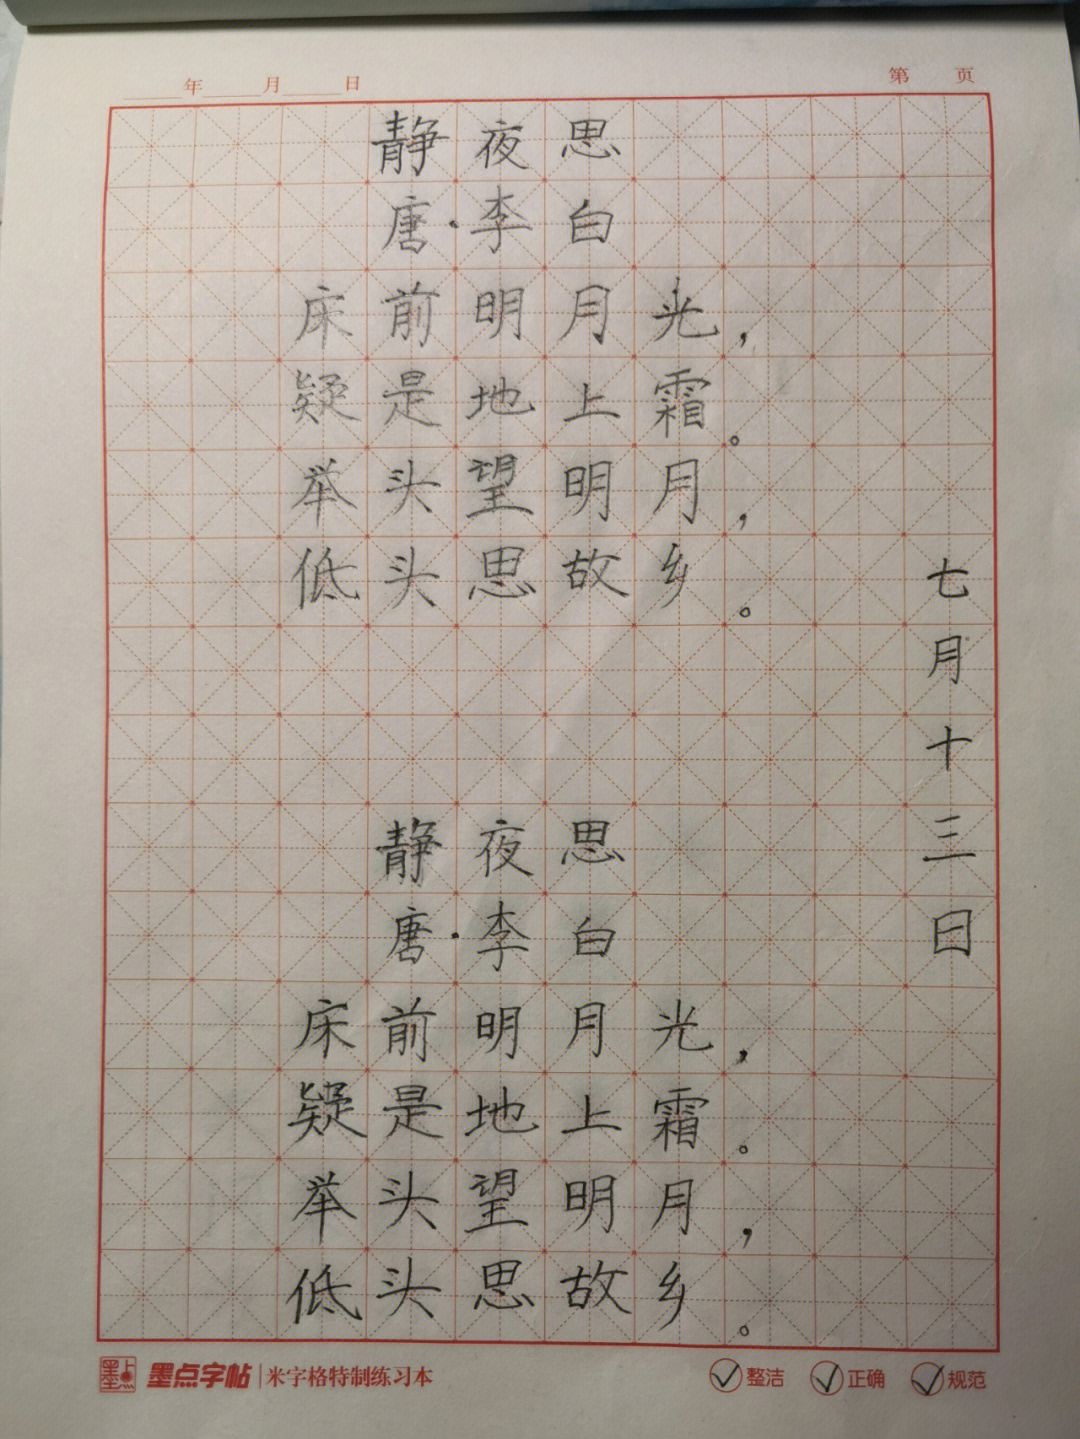 年 月 日
第 页
静夜思
唐·李白
床前明月光，
疑是地上霜。
举头望明月，
低头思故乡。
静夜思
唐·李白
床前明月光，
疑是地上霜。
举头望明月，
低头思故乡。
七月十三日
墨点 墨点字帖 米字格特制练习本
整洁 正确 规范